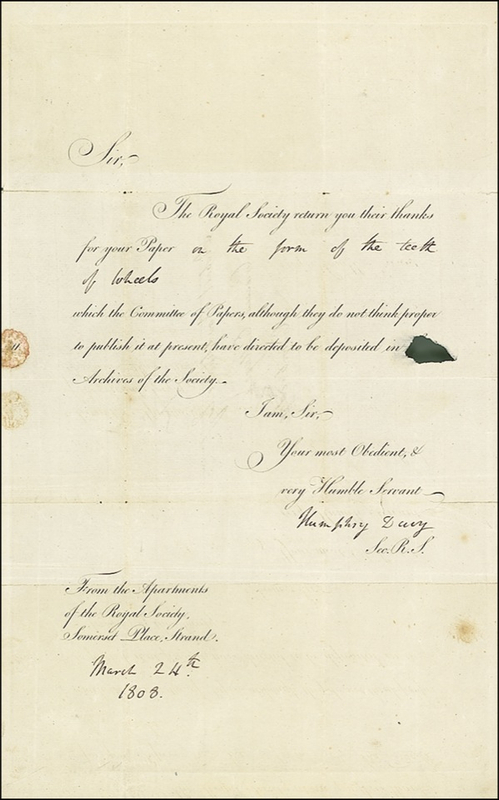 Sir,
The Royal Society return you their thanks
for your Paper on the form of the teeth
of Wheels
which the Committee of Papers, although they do not think proper
to publish it at present, have directed to be deposited in
Archives of the Society.
I am, Sir,
Your most Obedient, &
very Humble Servant
Humphry Davy
Sec. R.S.
From the Apartments
of the Royal Society,
Somerset Place, Strand.
March 24th
1808.